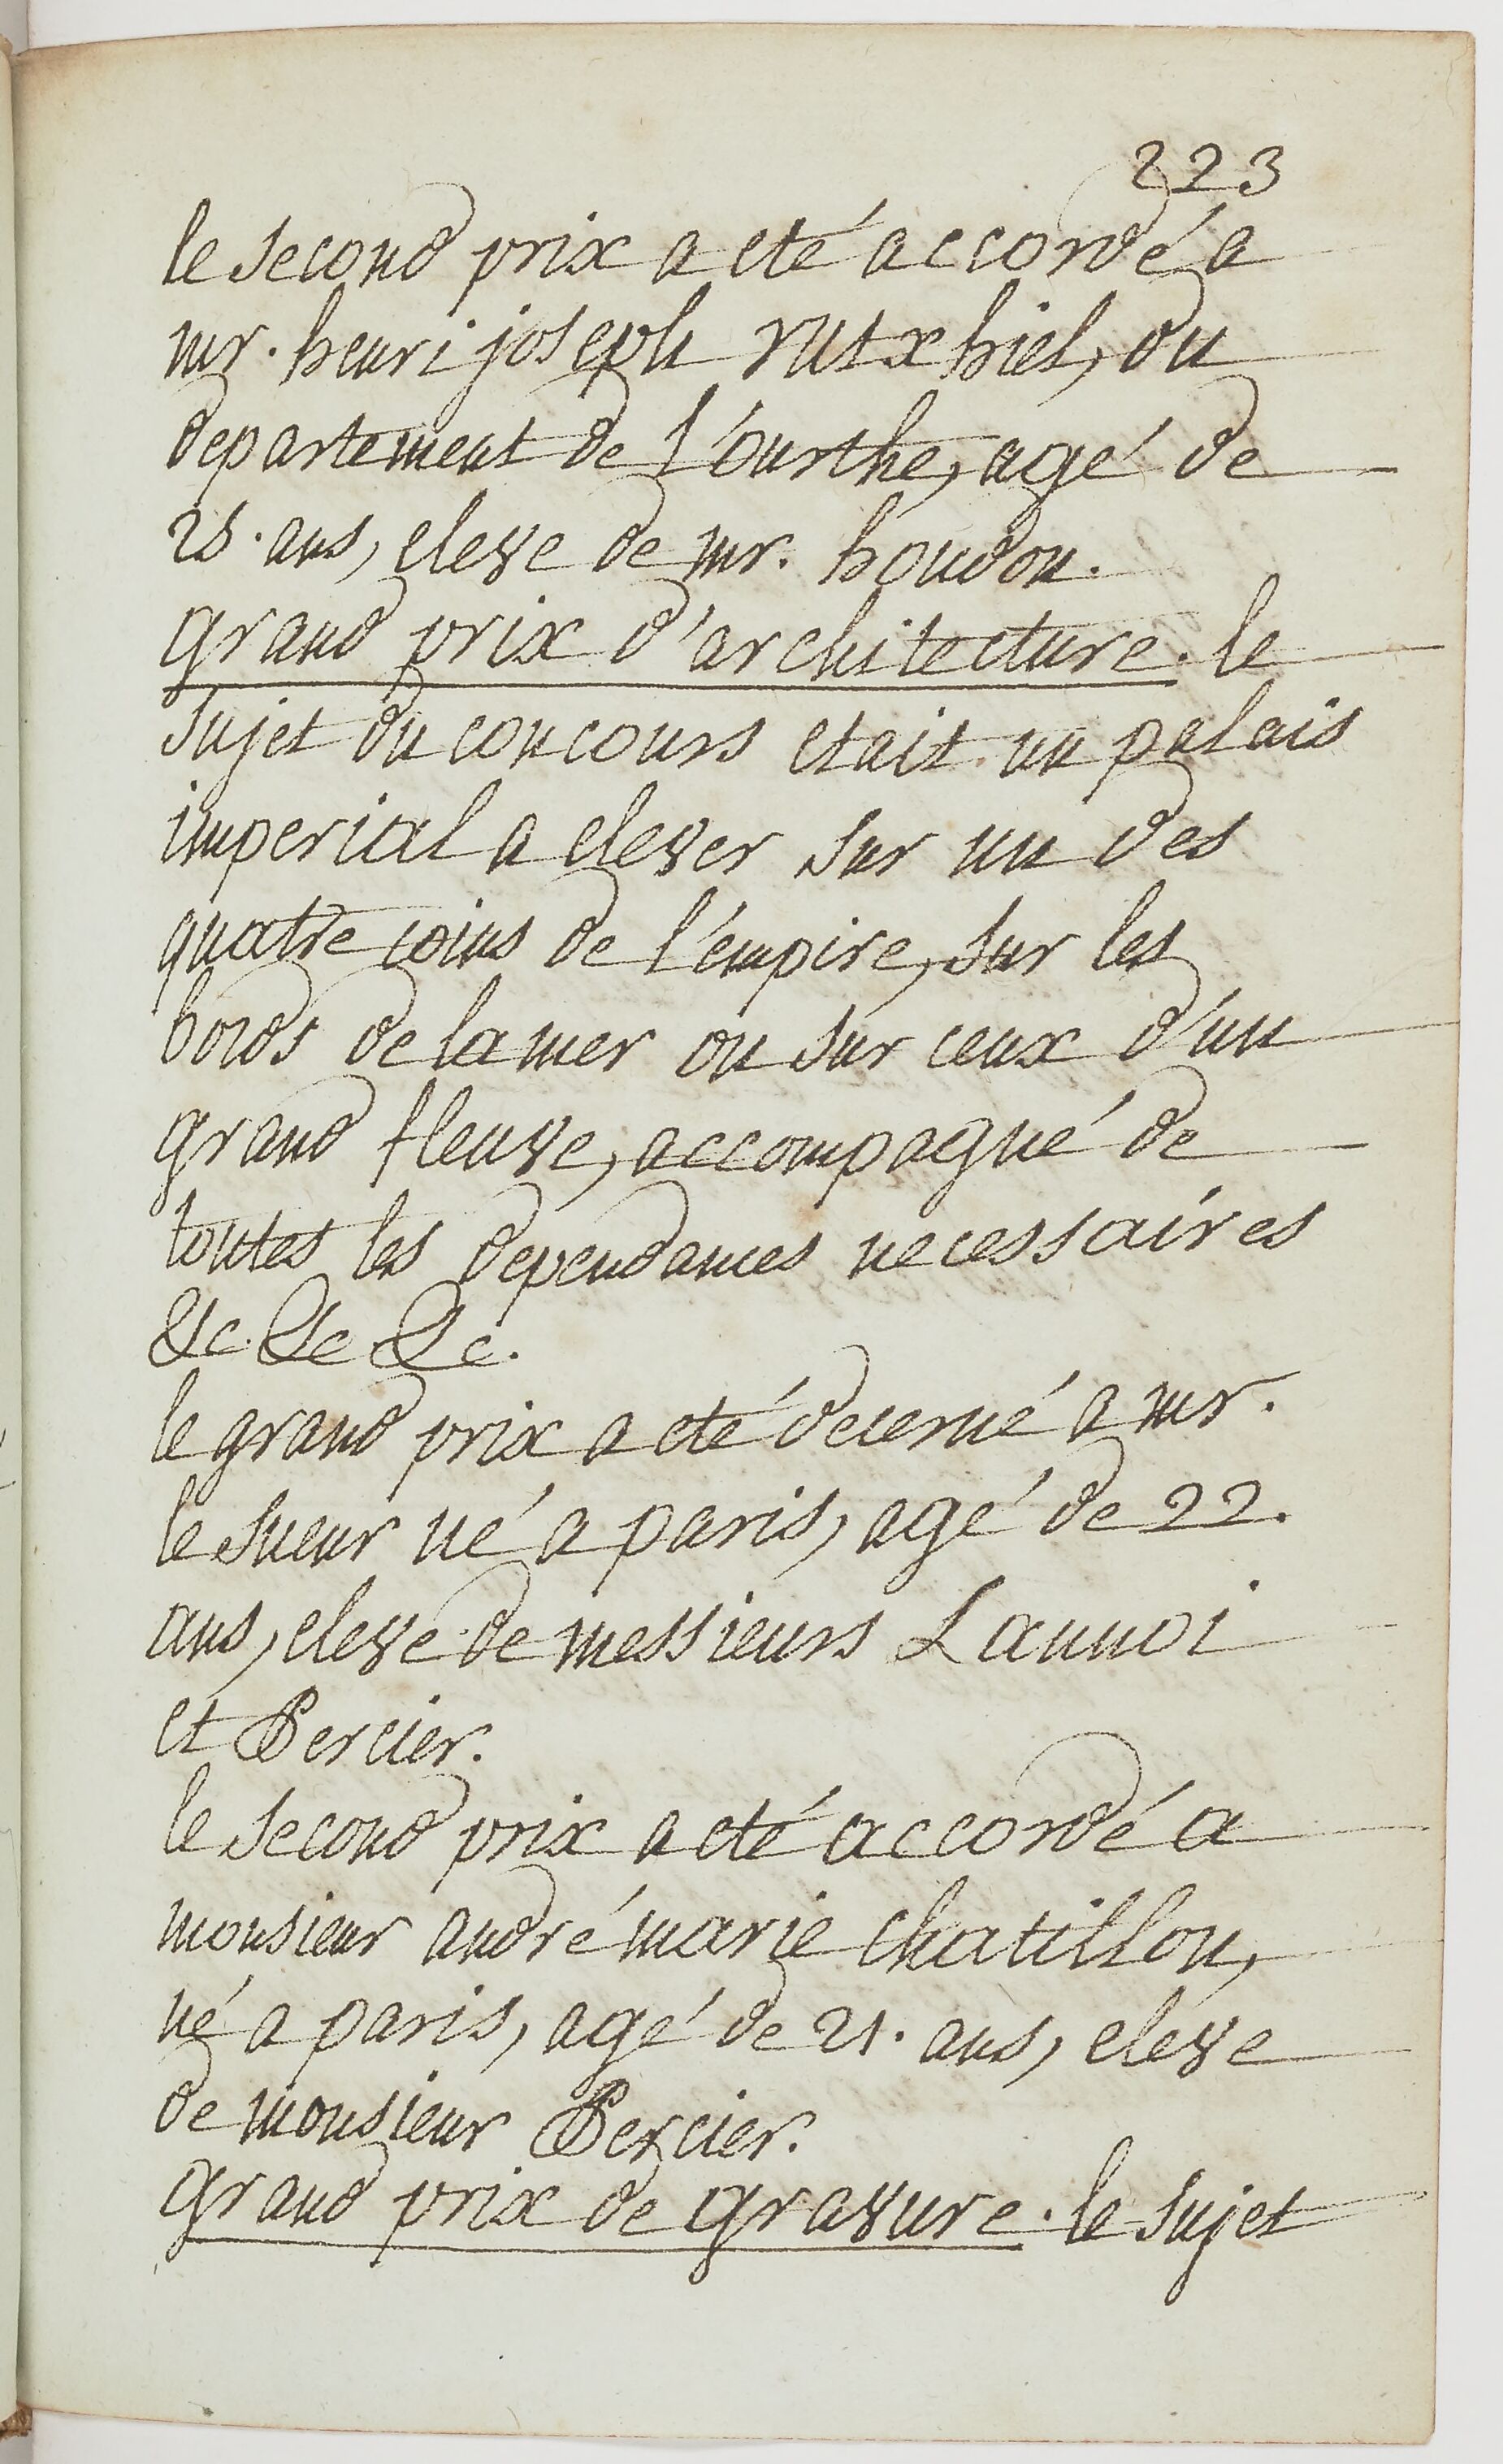 223
le second prix a eté accordé a
mr. henri joseph rutxhiel, du
departement de l'ourthe, agé de
25. ans, eleve de mr. houdon.
grand prix d'architecture. le
sujet du concours etait un palais
imperial a elever sur un des
quatre coins de l'émpire, sur les
bords de la mer ou sur ceux d'un
grand fleuve, accompagné de
toutes les dependances necessaires
&c. &c &c.
le grand prix a eté decerné a mr.
le sueur né a paris, agé de 22.
ans, eleve de messieurs Lannoi
et Percier.
le second prix a eté accordé a
monsieur andré marie chatillon,
né a paris, agé de 21. ans, eléve
de monsieur Percier.
grand prix de gravure. le sujet